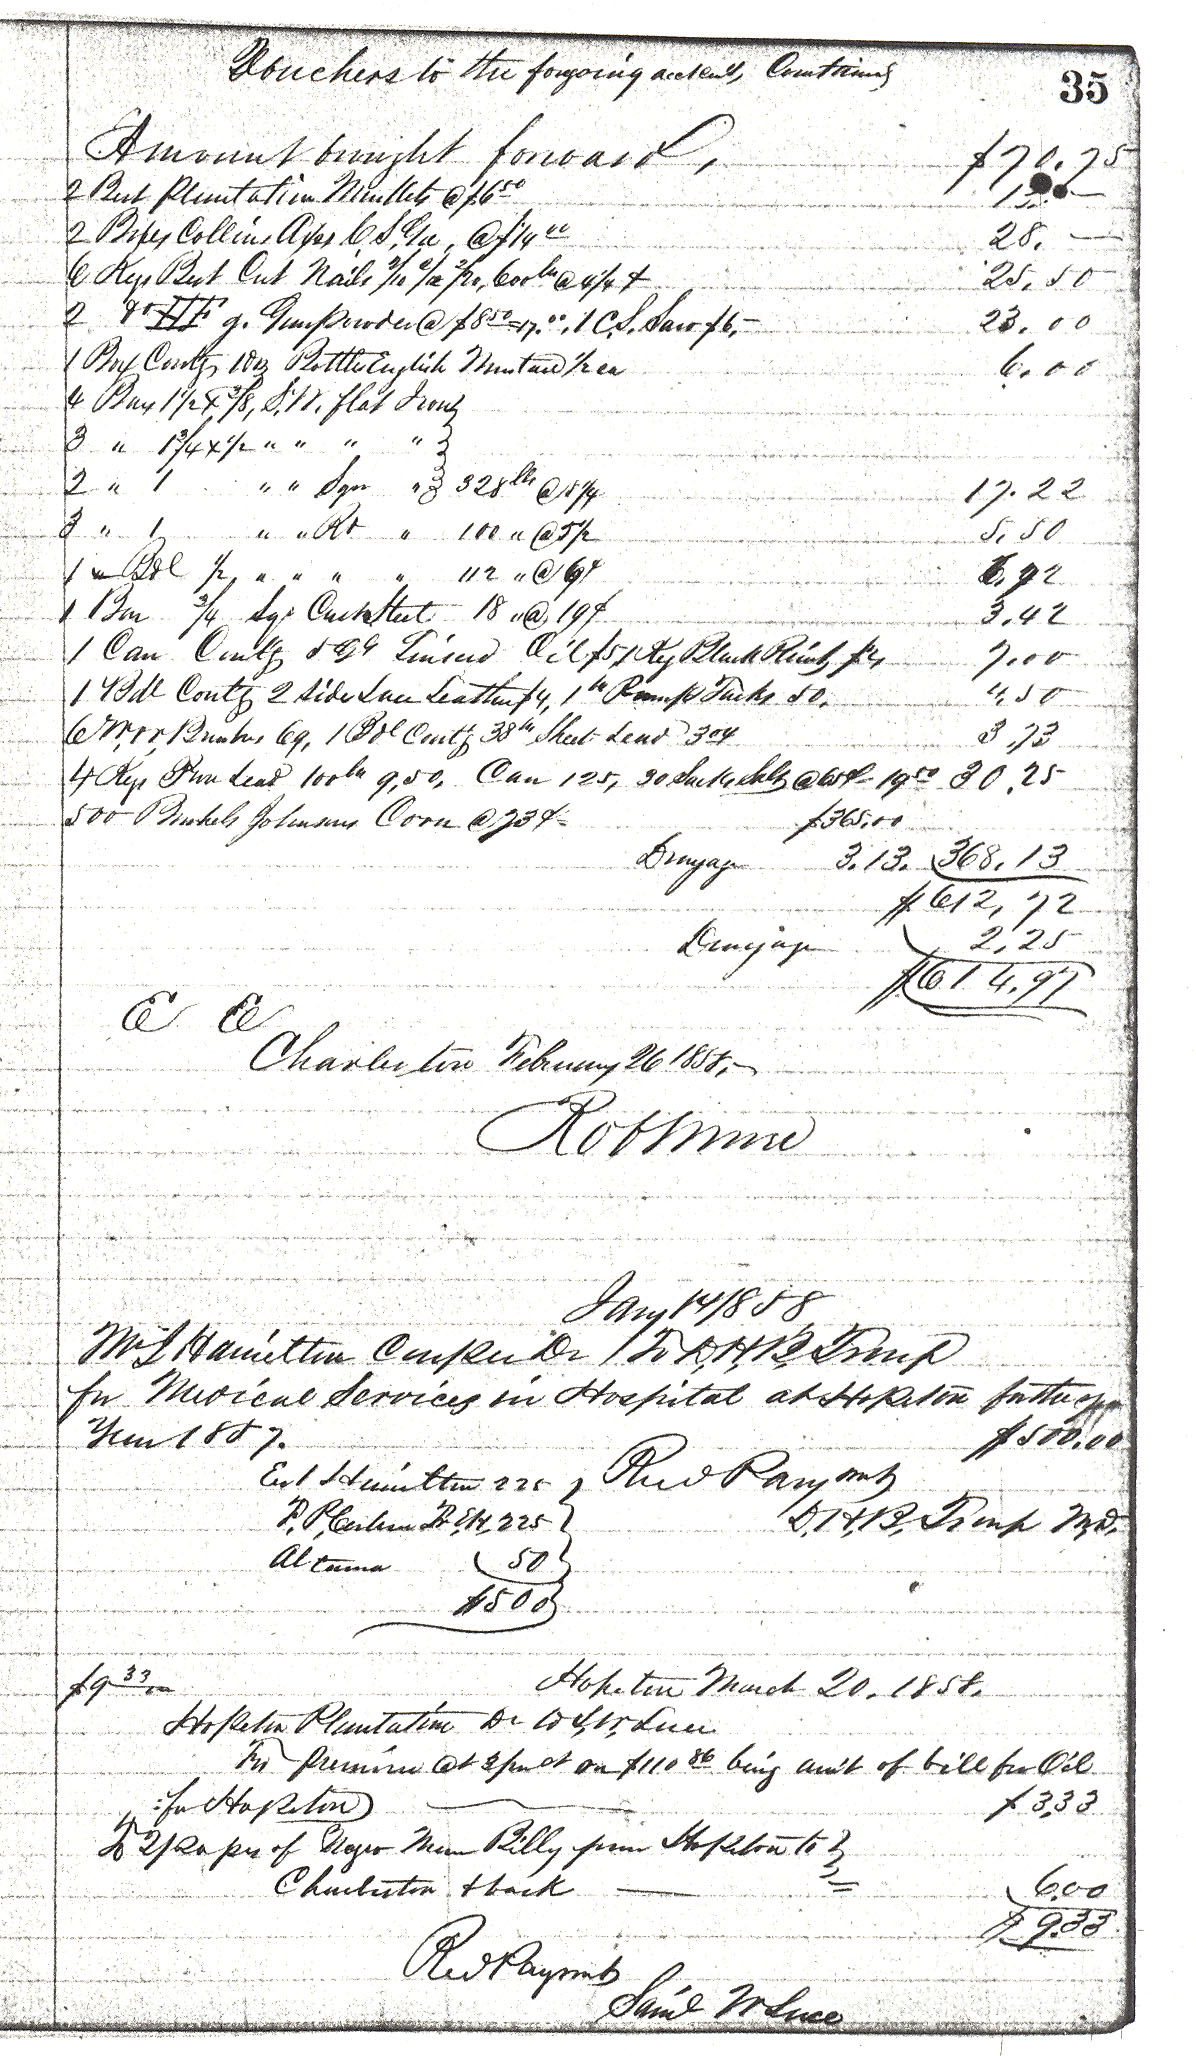 Vouchers to the foregoing accounts, Continued
35
Amount brought forward, $70.75
2 Best Plantation @ $6 50 13. —
2 Boxes Collins Axes C.S. Ga, @ $14 00 28. —
6 Kegs Best Cut Nails 600 lbs @ 4 1/4 ¢ 25.50
2 do FFF g. Gunpowder @ $8 50 = 17.00, 1 C.S. Saw $6,— 23.00
1 Box Contg 1 Doz Bottle English Mustard 1/2 ea 6.00
4 Bars 1 1/2 x 3/8, S.W. flat Iron }
3 " 1 3/4 x 1/2 " " " " }
2 " 1 " " Sqr " } 328 lbs @ 5 1/4 17.22
3 " 1 " " Rd " 100 " @ 5 1/2 5.50
1 " Bdl 1/2 " " " " 112 " @ 6 ¢ 6.72
1 Bar 3/4 Sqr Cast Steel 18 " @ 19 ¢ 3.42
1 Can Contg 5 Gls Linseed Oil $5, 1 Keg Black Paint, $2, 7.00
1 Bdl Contg 2 Sides Lace Leather $4, 1 lb Pump Tacks 50. 4.50
6 Brushes 69, 1 Bdl Contg 38 lbs Sheet Lead 304 3.73
4 Kegs Pure Lead 100 lbs 9,50, Can 125, 30 Sacks Salt @ 65 ¢ 19 50 30.25
500 Bushels Johnsons Corn @ 73 ¢ $365.00
Drayage 3.13. 368.13
$612,72
Drayage 2.25
$614.97
E E
Charleston February 26 1858,—
Rob Mure
Jany 14 1858
Mr J Hamilton Couper Dr To D, H, B, Troup
for Medical Services in Hospital at Hopeton for the
Year 1857. $500.00
Est J Hamilton 225 } Recd Payment
F. P. Corbin 225 } D, H, B, Troup M,D.
Altama 50 }
$500 }
$9 33 Hopeton March 20. 1858.
Hopeton Plantation Dr to S, W, Luce
For premium at 3 pr ct on $110 86 being amt of bill for Oil
for Hopeton) — $3,33
To 2 of Negro Man Billy from Hopeton to }
Charleston & back — 6.00
$9.33
Recd Payment
Saml W Luce